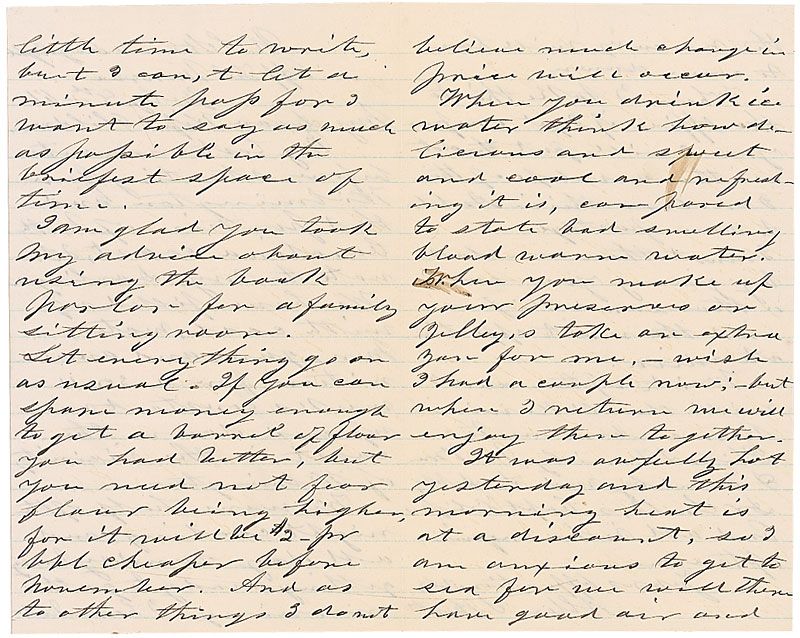 little time to write,
but I can,t let a
minute pass for I
want to say as much
as possible in the
briefest space of
time.
I am glad you took
my advice about
using the back
parlor for a family
sitting room.
Let everything go on
as usual. If you can
spare money enough
to get a barrel of flour
you had better, but
you need not fear
flour being higher,
for it will be $2 - pr
bbl cheaper before
November. And as
to other things I do not
believe much change in
price will occur.
When you drink ice
water think how de-
licious and sweet
and cool and refresh-
ing it is, compared
to stale bad smelling
blood warm water.
When you make up
your preserves or
Jelley,s take an extra
for me, - wish
I had a couple now; - but
when I return we will
enjoy them together.
It was awfully hot
yesterday and this
morning heat is
at a discount, so I
am anxious to get to
sea for we will there
have good air and